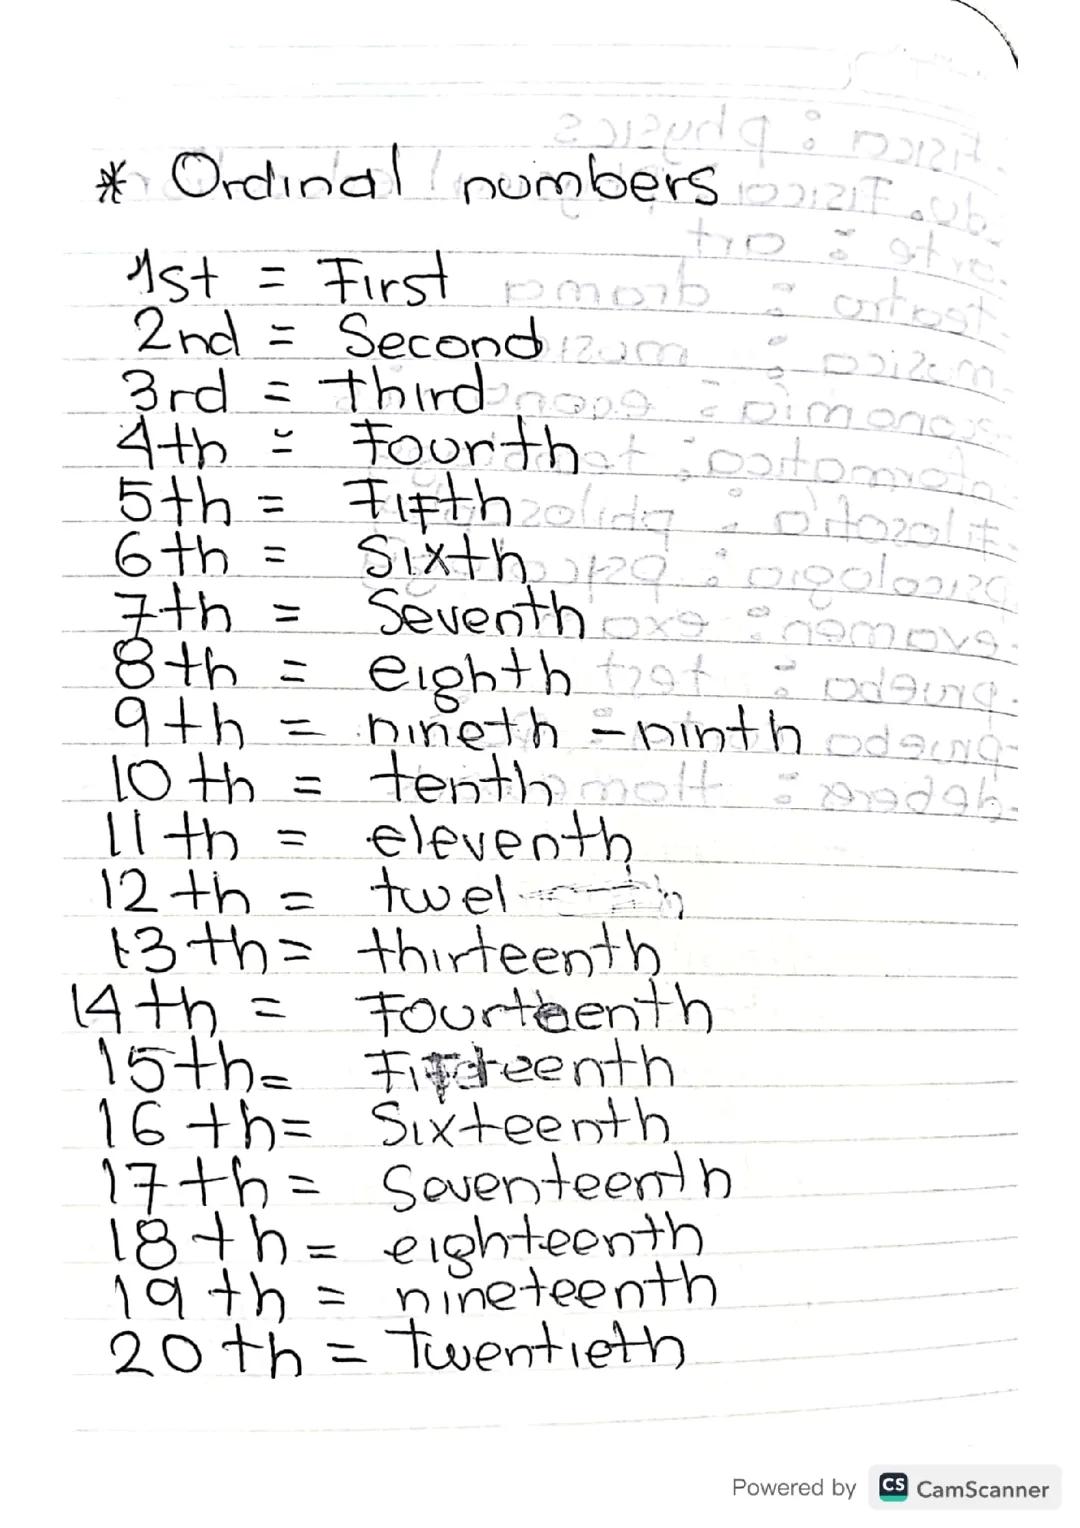 * Ordinal numbers
1st = First
2nd = Second
3rd = third
4th = Fourth
5th = Fifth
6th = Sixth
7th = Seventh
8th = eighth
9th = nineth - ninth
10th = tenth
11th = eleventh
12th = twel
13th = thirteenth
14th = Fourteenth
15th = Fifteenth
16th = Sixteenth
17th = Seventeenth
18th = eighteenth
19th = nineteenth
20th = Twentieth
Powered by CS CamScanner